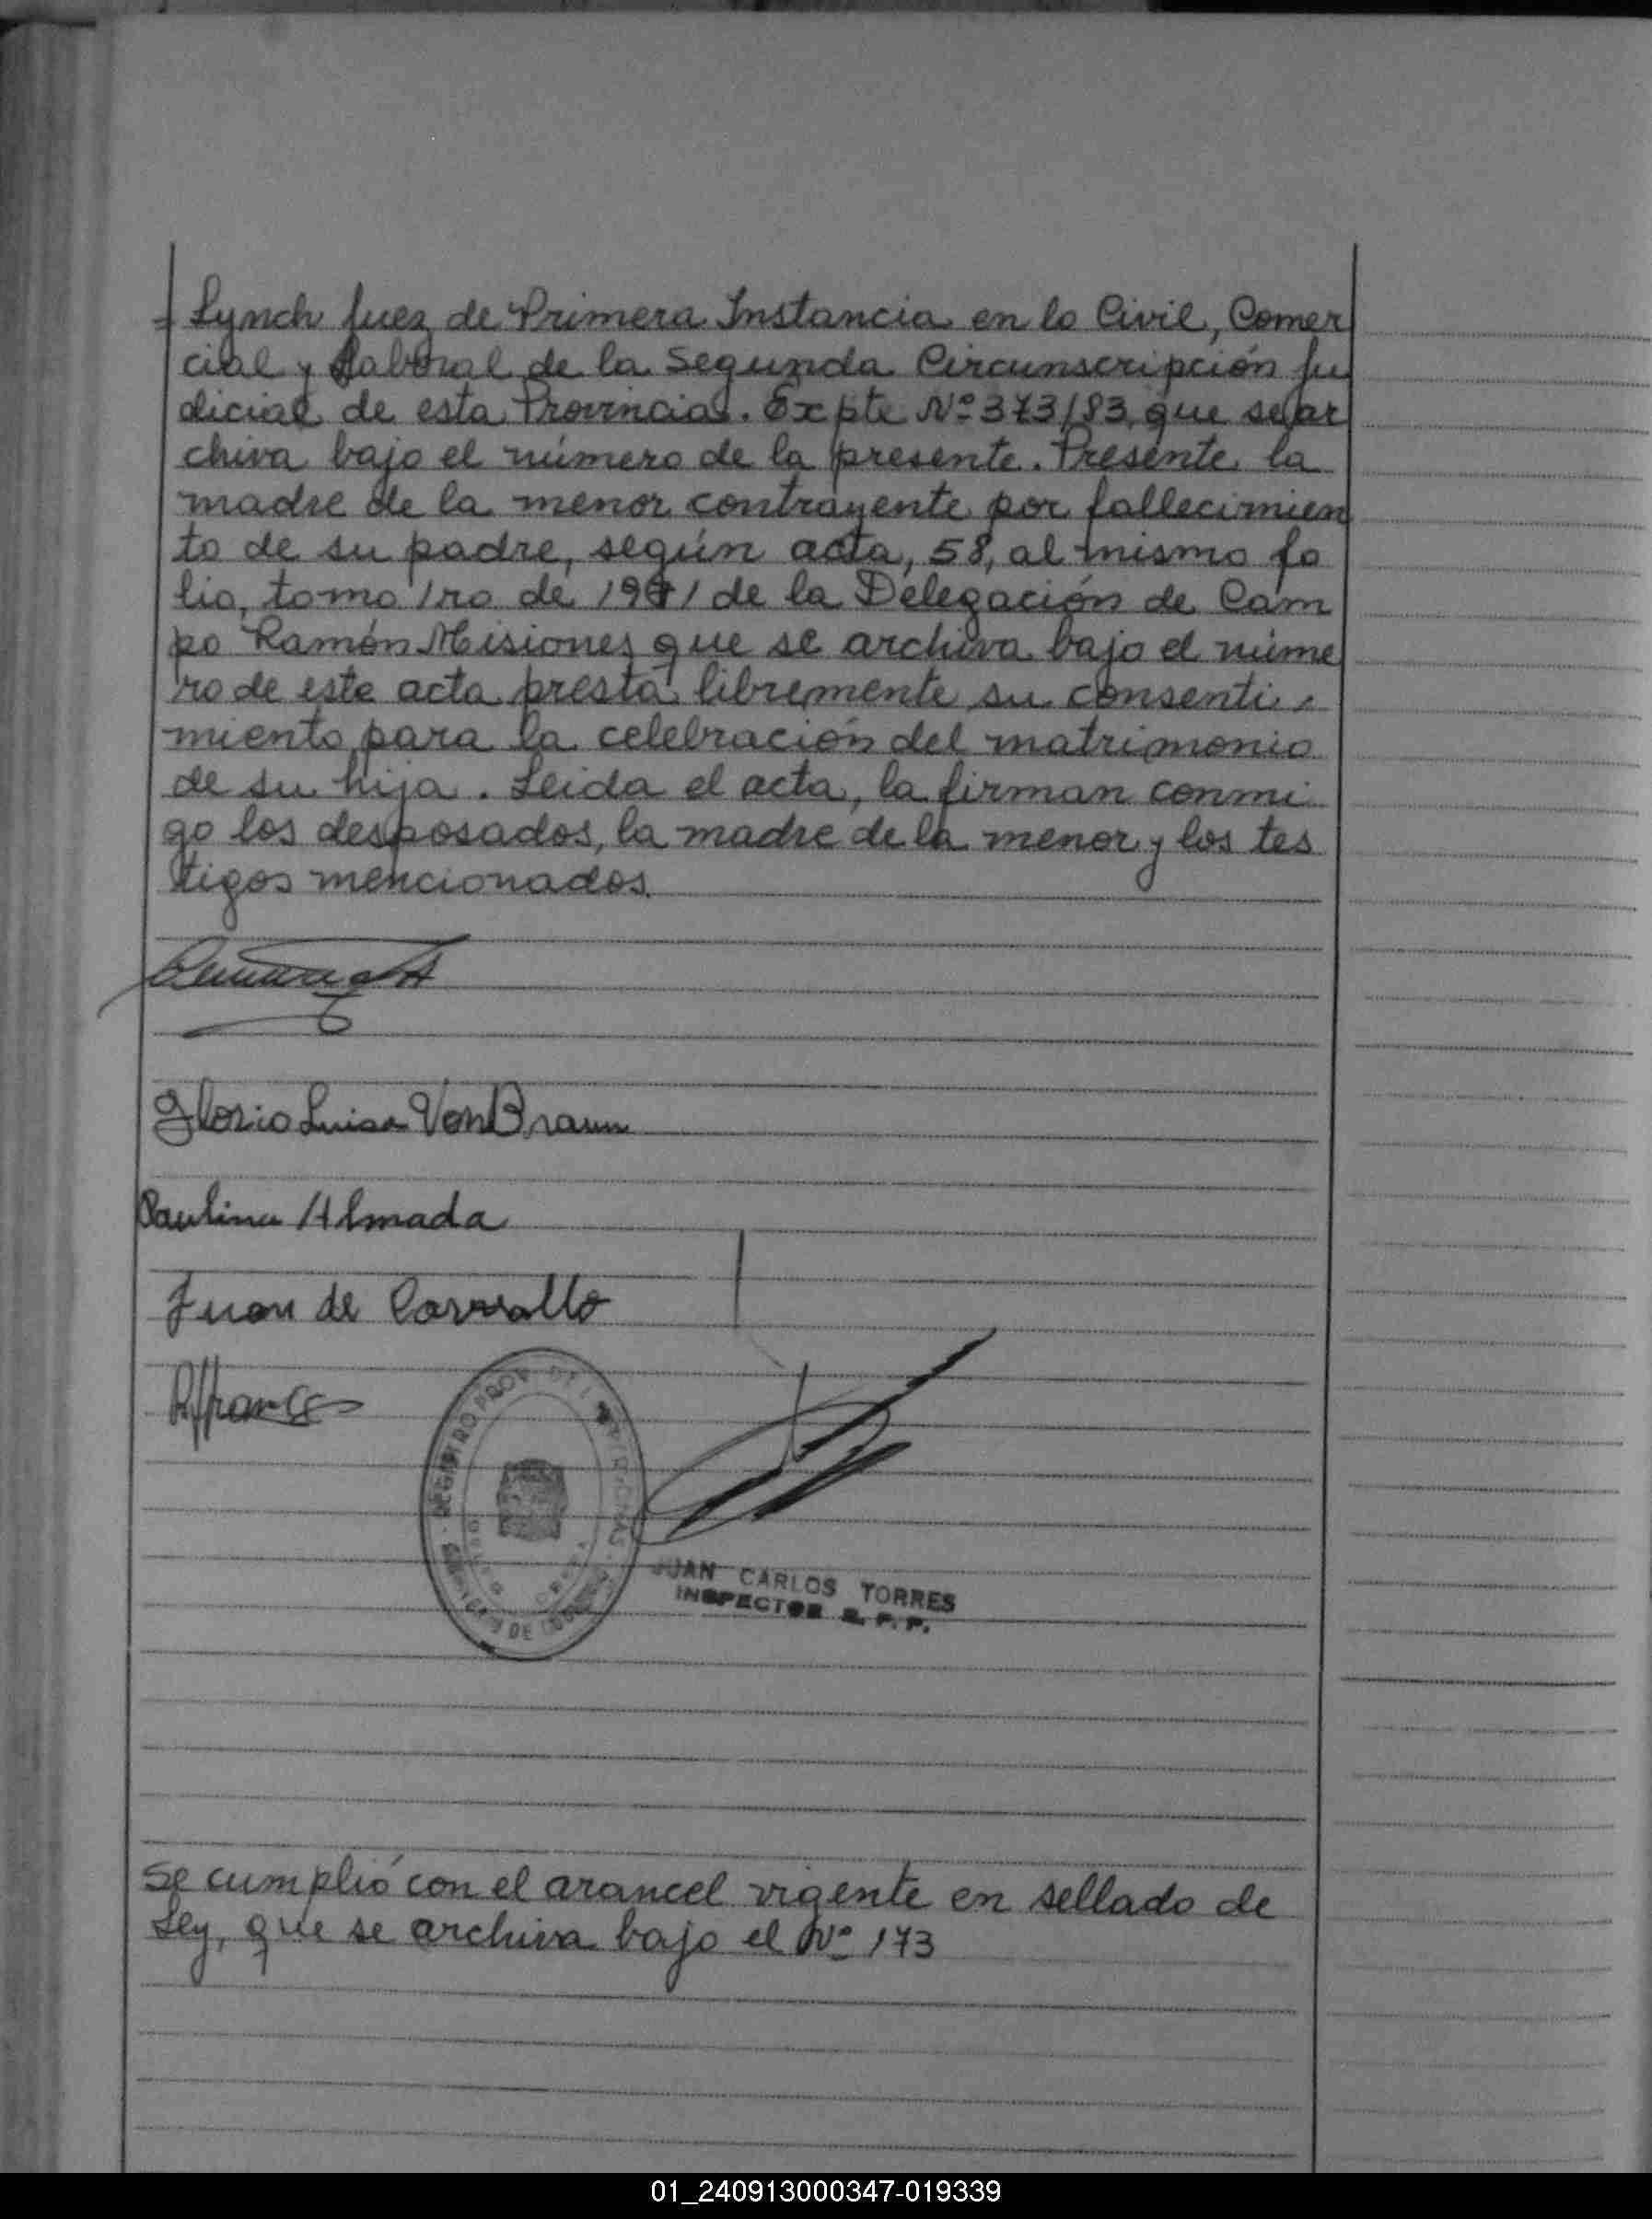 = Lynch Juez de Primera Instancia en lo Civil, Comer
cial y Laboral de la Segunda Circunscripción Ju
dicial de esta Provincia. Expte Nº 373/83, que se ar
chiva bajo el número de la presente. Presente la
madre de la menor contrayente por fallecimien
to de su padre, según acta, 58, al mismo fo
lio, tomo 1ro de 1981 de la Delegación de Cam
po Ramón Misiones que se archiva bajo el núme
ro de este acta presta libremente su consenti
miento para la celebración del matrimonio
de su hija. Leida el acta, la firman conmi
go los desposados, la madre de la menor y los tes
tigos mencionados.
Gloria Luisa Von Braun
Paulina Almada
Juan de Carvallo
REGISTRO PROV. DE LAS PERSONAS
JUAN CARLOS TORRES
INSPECTOR R. P. P.
Se cumplió con el arancel vigente en sellado de
Ley, que se archiva bajo el Nº 173
01_240913000347-019339